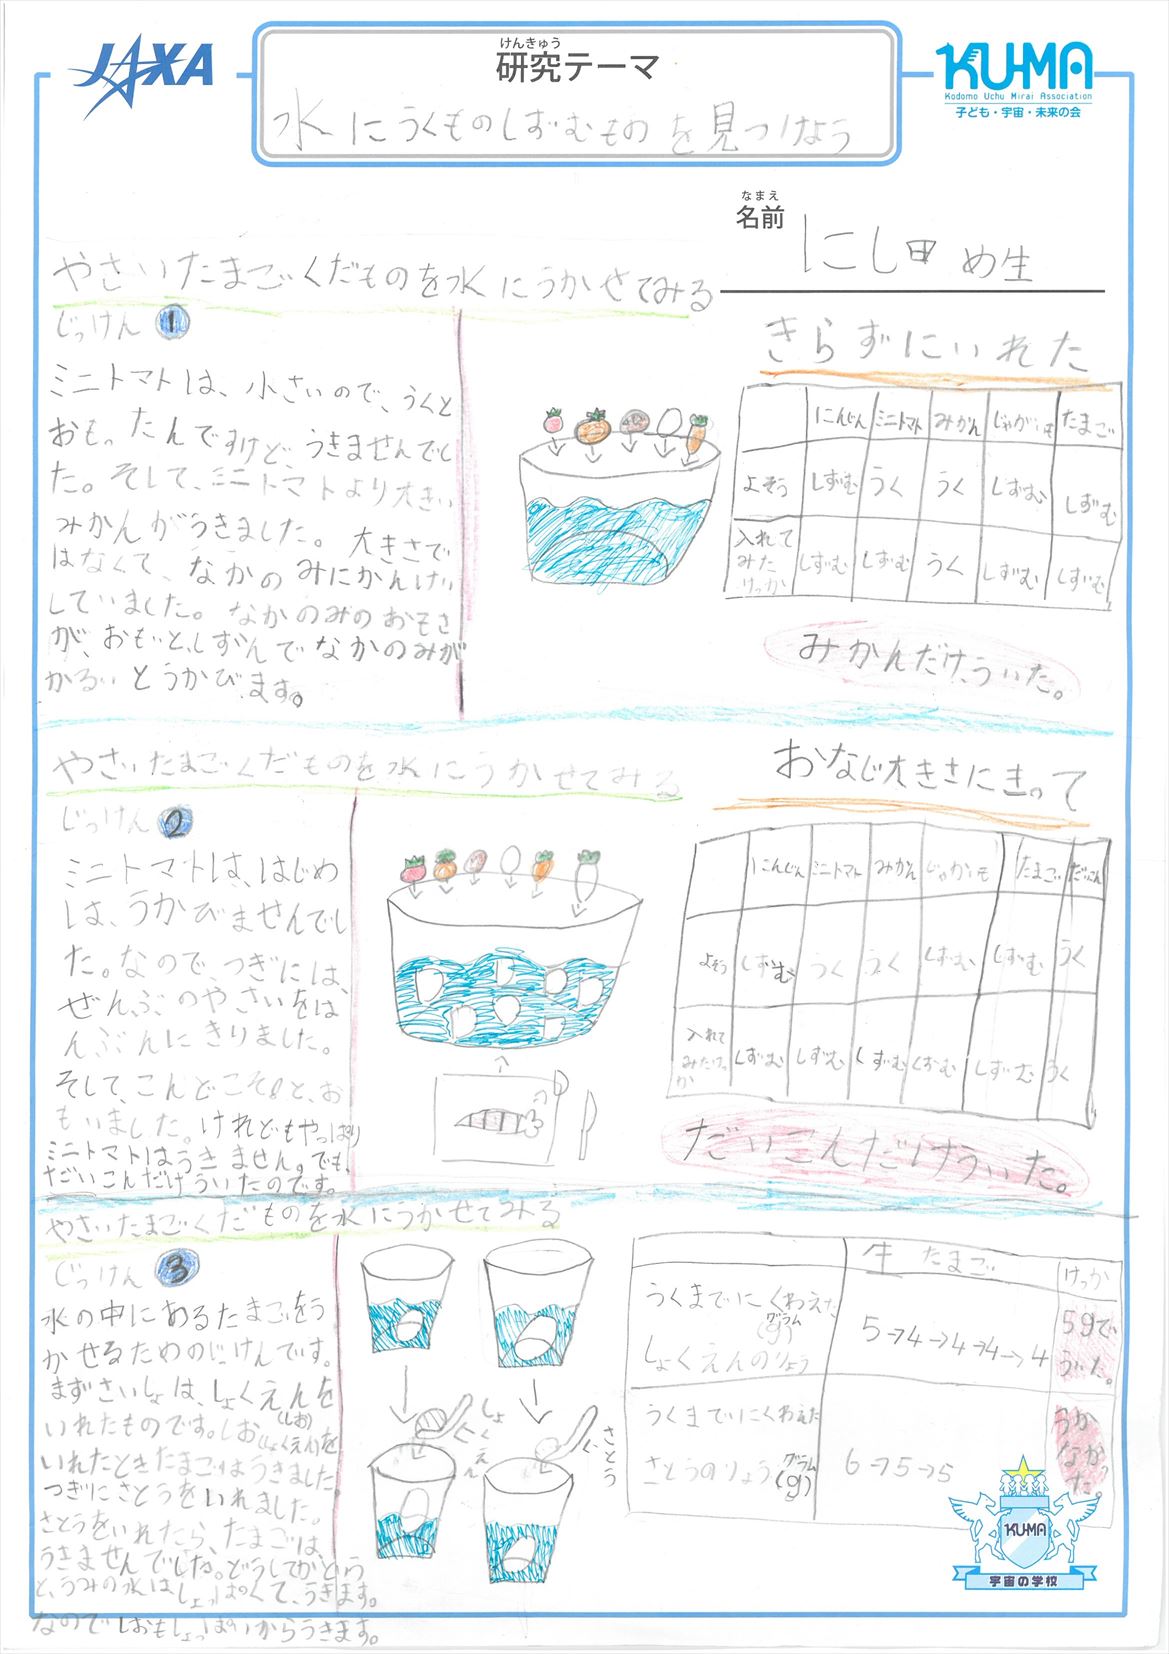 JAXA
けんきゅう
研究テーマ
水にうくものしずむものを見つけよう
KU-MA
Kodomo Uchu Mirai Association
子ども・宇宙・未来の会
なまえ
名前
にし田 め生
やさいたまごくだものを水にうかせてみる
じっけん 1
ミニトマトは、小さいので、うくと
おもったんですけど、うきませんでし
た。そして、ミニトマトより大きい
みかんがうきました。大きさで
はなくて、なかのみにかんけい
していました。なかのみのおもさ
が、おもいと、しずんでなかのみが
かるいとうかびます。
きらずにいれた
にんじん ミニトマト みかん じゃがいも たまご
よそう しずむ うく うく しずむ しずむ
入れて
みた
けっか しずむ しずむ うく しずむ しずむ
みかんだけ、ういた。
やさいたまごくだものを水にうかせてみる
じっけん 2
ミニトマトは、はじめ
は、うかびませんでし
た。なので、つぎには、
ぜんぶのやさいをは
んぶんにきりました。
そして、こんどこそ!と、お
もいました。けれどもやっぱり
ミニトマトはうきません。でも、
だいこんだけういたのです。
おなじ大きさにきって
にんじん ミニトマト みかん じゃがいも たまご だいこん
よそう しずむ うく うく しずむ しずむ うく
入れて
みたけっ
か しずむ しずむ しずむ しずむ しずむ うく
だいこんだけういた。
やさいたまごくだものを水にうかせてみる
じっけん 3
水の中にあるたまごをう
かせるためのじっけんです。
まずさいしょは、しょくえんを
いれたものです。しお(しょくえん)を
(しお)
いれたときたまごはうきました。
つぎにさとうをいれました。
さとうをいれたら、たまごは、
うきませんでした。どうしてかという
と、うみの水はしょっぱくて、うきます。
なのでしおもしょっぱいからうきます。
しょくえん
さとう
生たまご けっか
うくまでにくわえた
しょくえんのりょう
グラム
(g)
5→4→4→4→4
59でういた。
うくまでにくわえた
さとうのりょう
グラム
(g)
6→5→5
うかなかった。
KU-MA
宇宙の学校